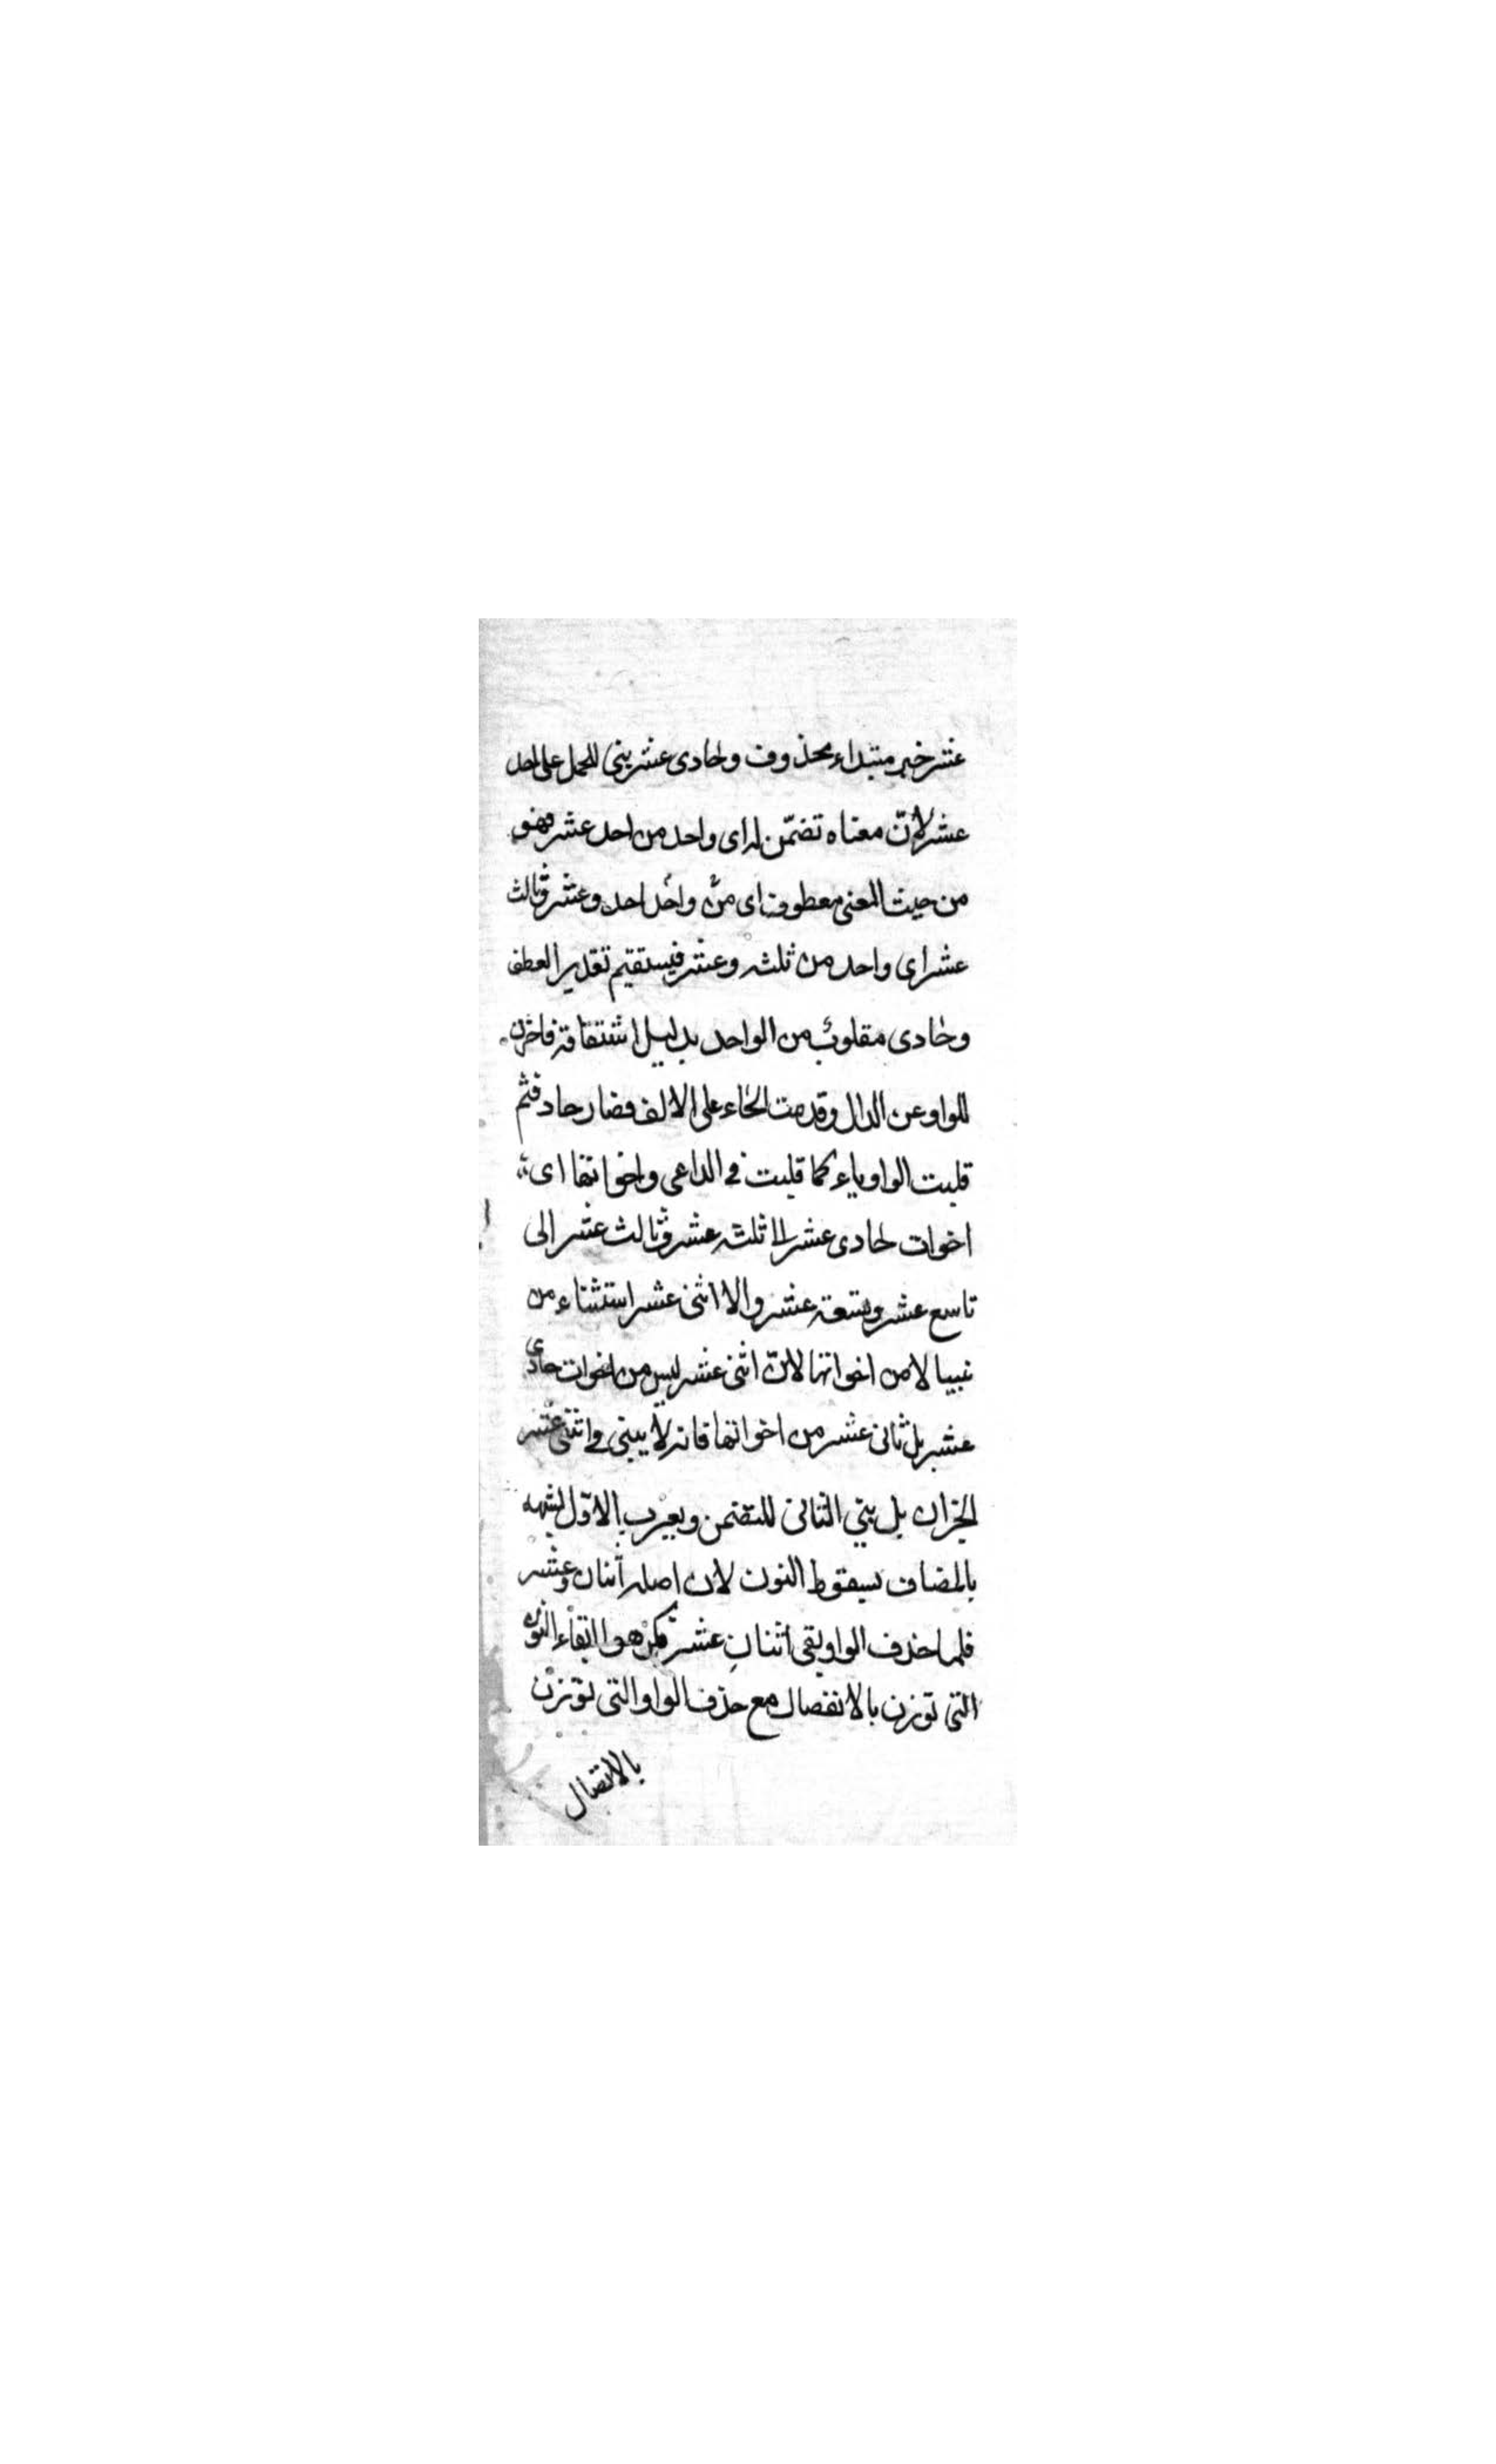 عشر خبر مبتداء محذوف وحادى عشر بنى للحمل على احد
عشر لانّ معناه تضمّن له اى واحد من احد عشر فهو
من حيث المعنى معطوف اى من واحد احد وعشر وثالث
عشر اى واحد من ثلثه وعشر فيستقيم تقدير العطف
وحادى مقلوب من الواحد بدليل اشتقاقه فاخرت
الواو عن الدال وقدمت الحاء على الالف فصار حاد فثم
قلبت الواو ياء كما قلبت فى الداعى واخواتها اى
اخوات حادى عشر لا ثلثه عشر وثالث عشر الى
تاسع عشر وتسعة عشر والا اثنى عشر استثناء من
نبيا لا من اخواتها لانّ اثنى عشر ليس من اخوات حادى
عشر بل ثانى عشر من اخواتها فانه لا يبنى فى اثنى عشر
الجزان بل بنى الثانى للتضمن ويعرب الاوّل لشبهه
بالمضاف بسقوط النون لان اصله اثنان وعشر
فلما حذف الواو بقى اثنان عشر فكرهوا ابقاء النون
التى توزن بالانفصال مع حذف الواو التى توزن
بالاتصال